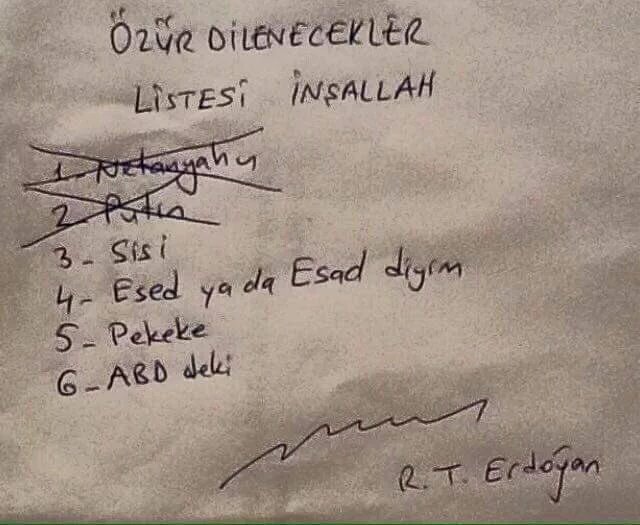 ÖZÜR DİLENECEKLER
LİSTESİ İNŞALLAH
1- Netanyahu
2- Putin
3- Sisi
4- Esed ya da Esad diyim
5- Pekeke
6- ABD deki
R. T. Erdoğan